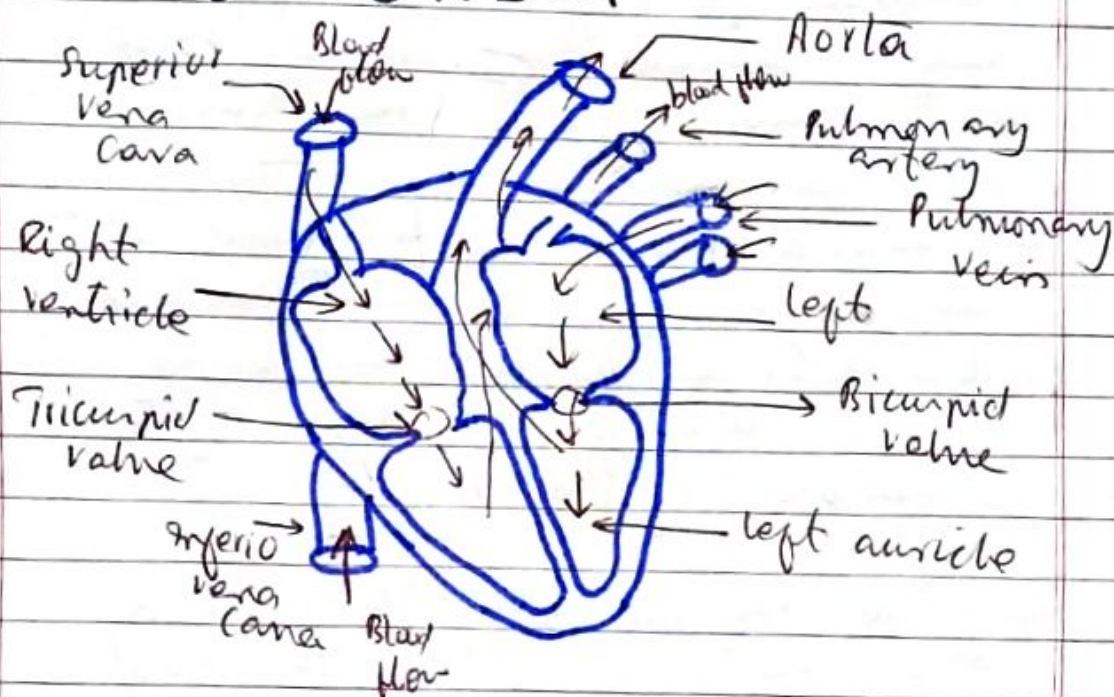 Superior
Vena
Cava
Blood
flow
Aorta
blood flow
Pulmonary
artery
Pulmonary
Vein
Right
ventricle
left
Tricuspid
valve
Bicuspid
valve
Inferio
vena
Cava
Blood
flow
left auricle